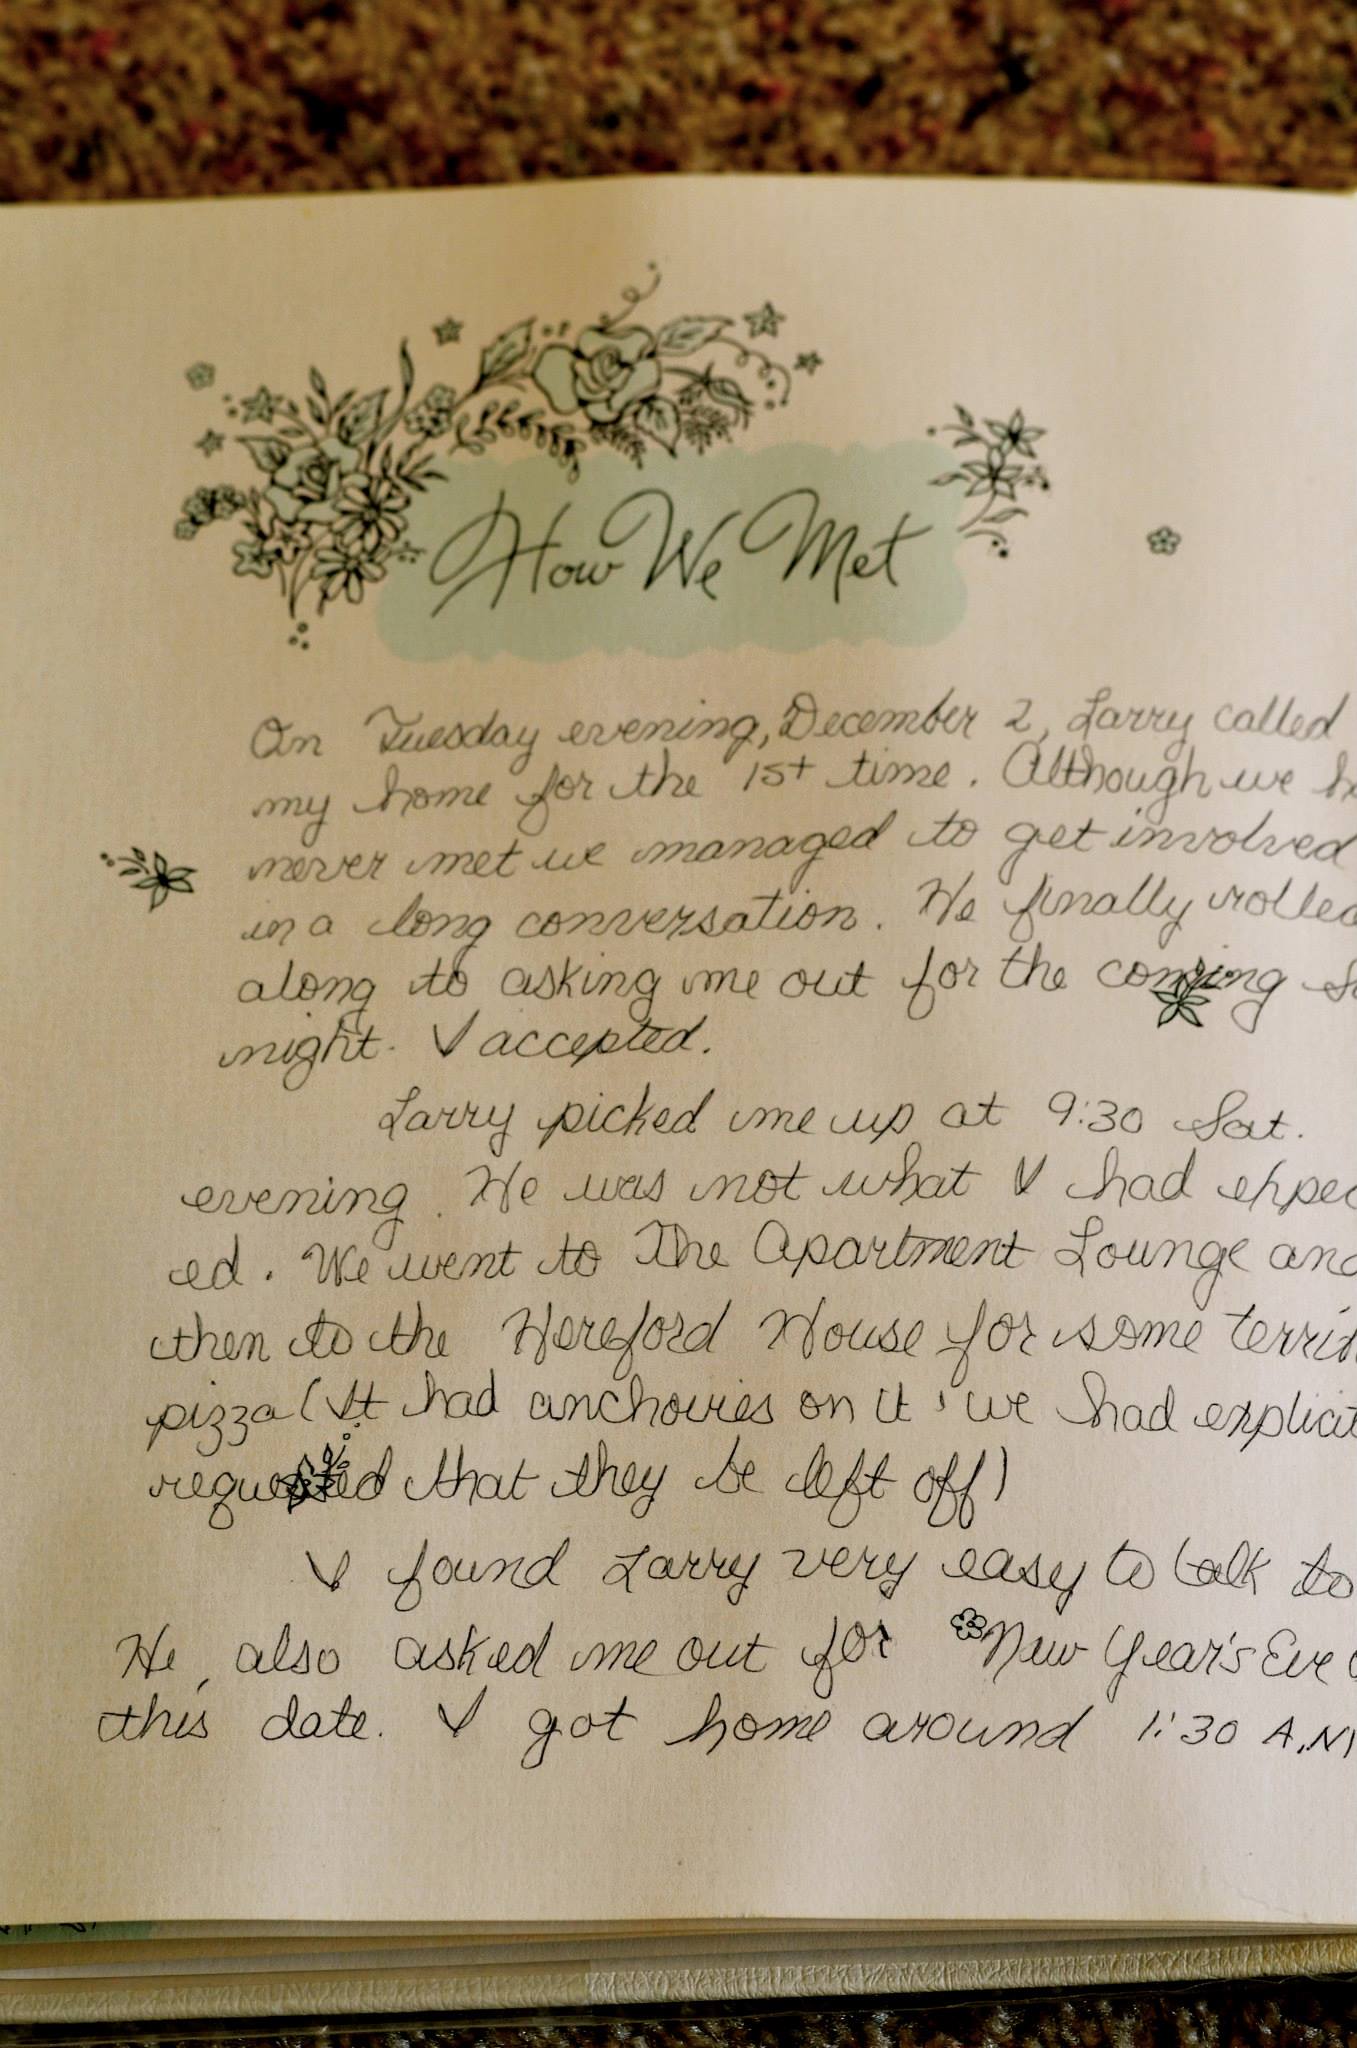 How We Met
On Tuesday evening, December 2, Larry called
my home for the 1st time. Although we
never met we managed to get involved
in a long conversation. He finally rolled
along to asking me out for the coming
night. I accepted.
Larry picked me up at 9:30 Sat.
evening. He was not what I had expec
ed. We went to The Apartment Lounge and
then to the Hereford House for some
pizza (It had anchovies on it & we had explicit
requested that they be left off)
I found Larry very easy to talk to
He also asked me out for New Year's Eve
this date. I got home around 1:30 A.M